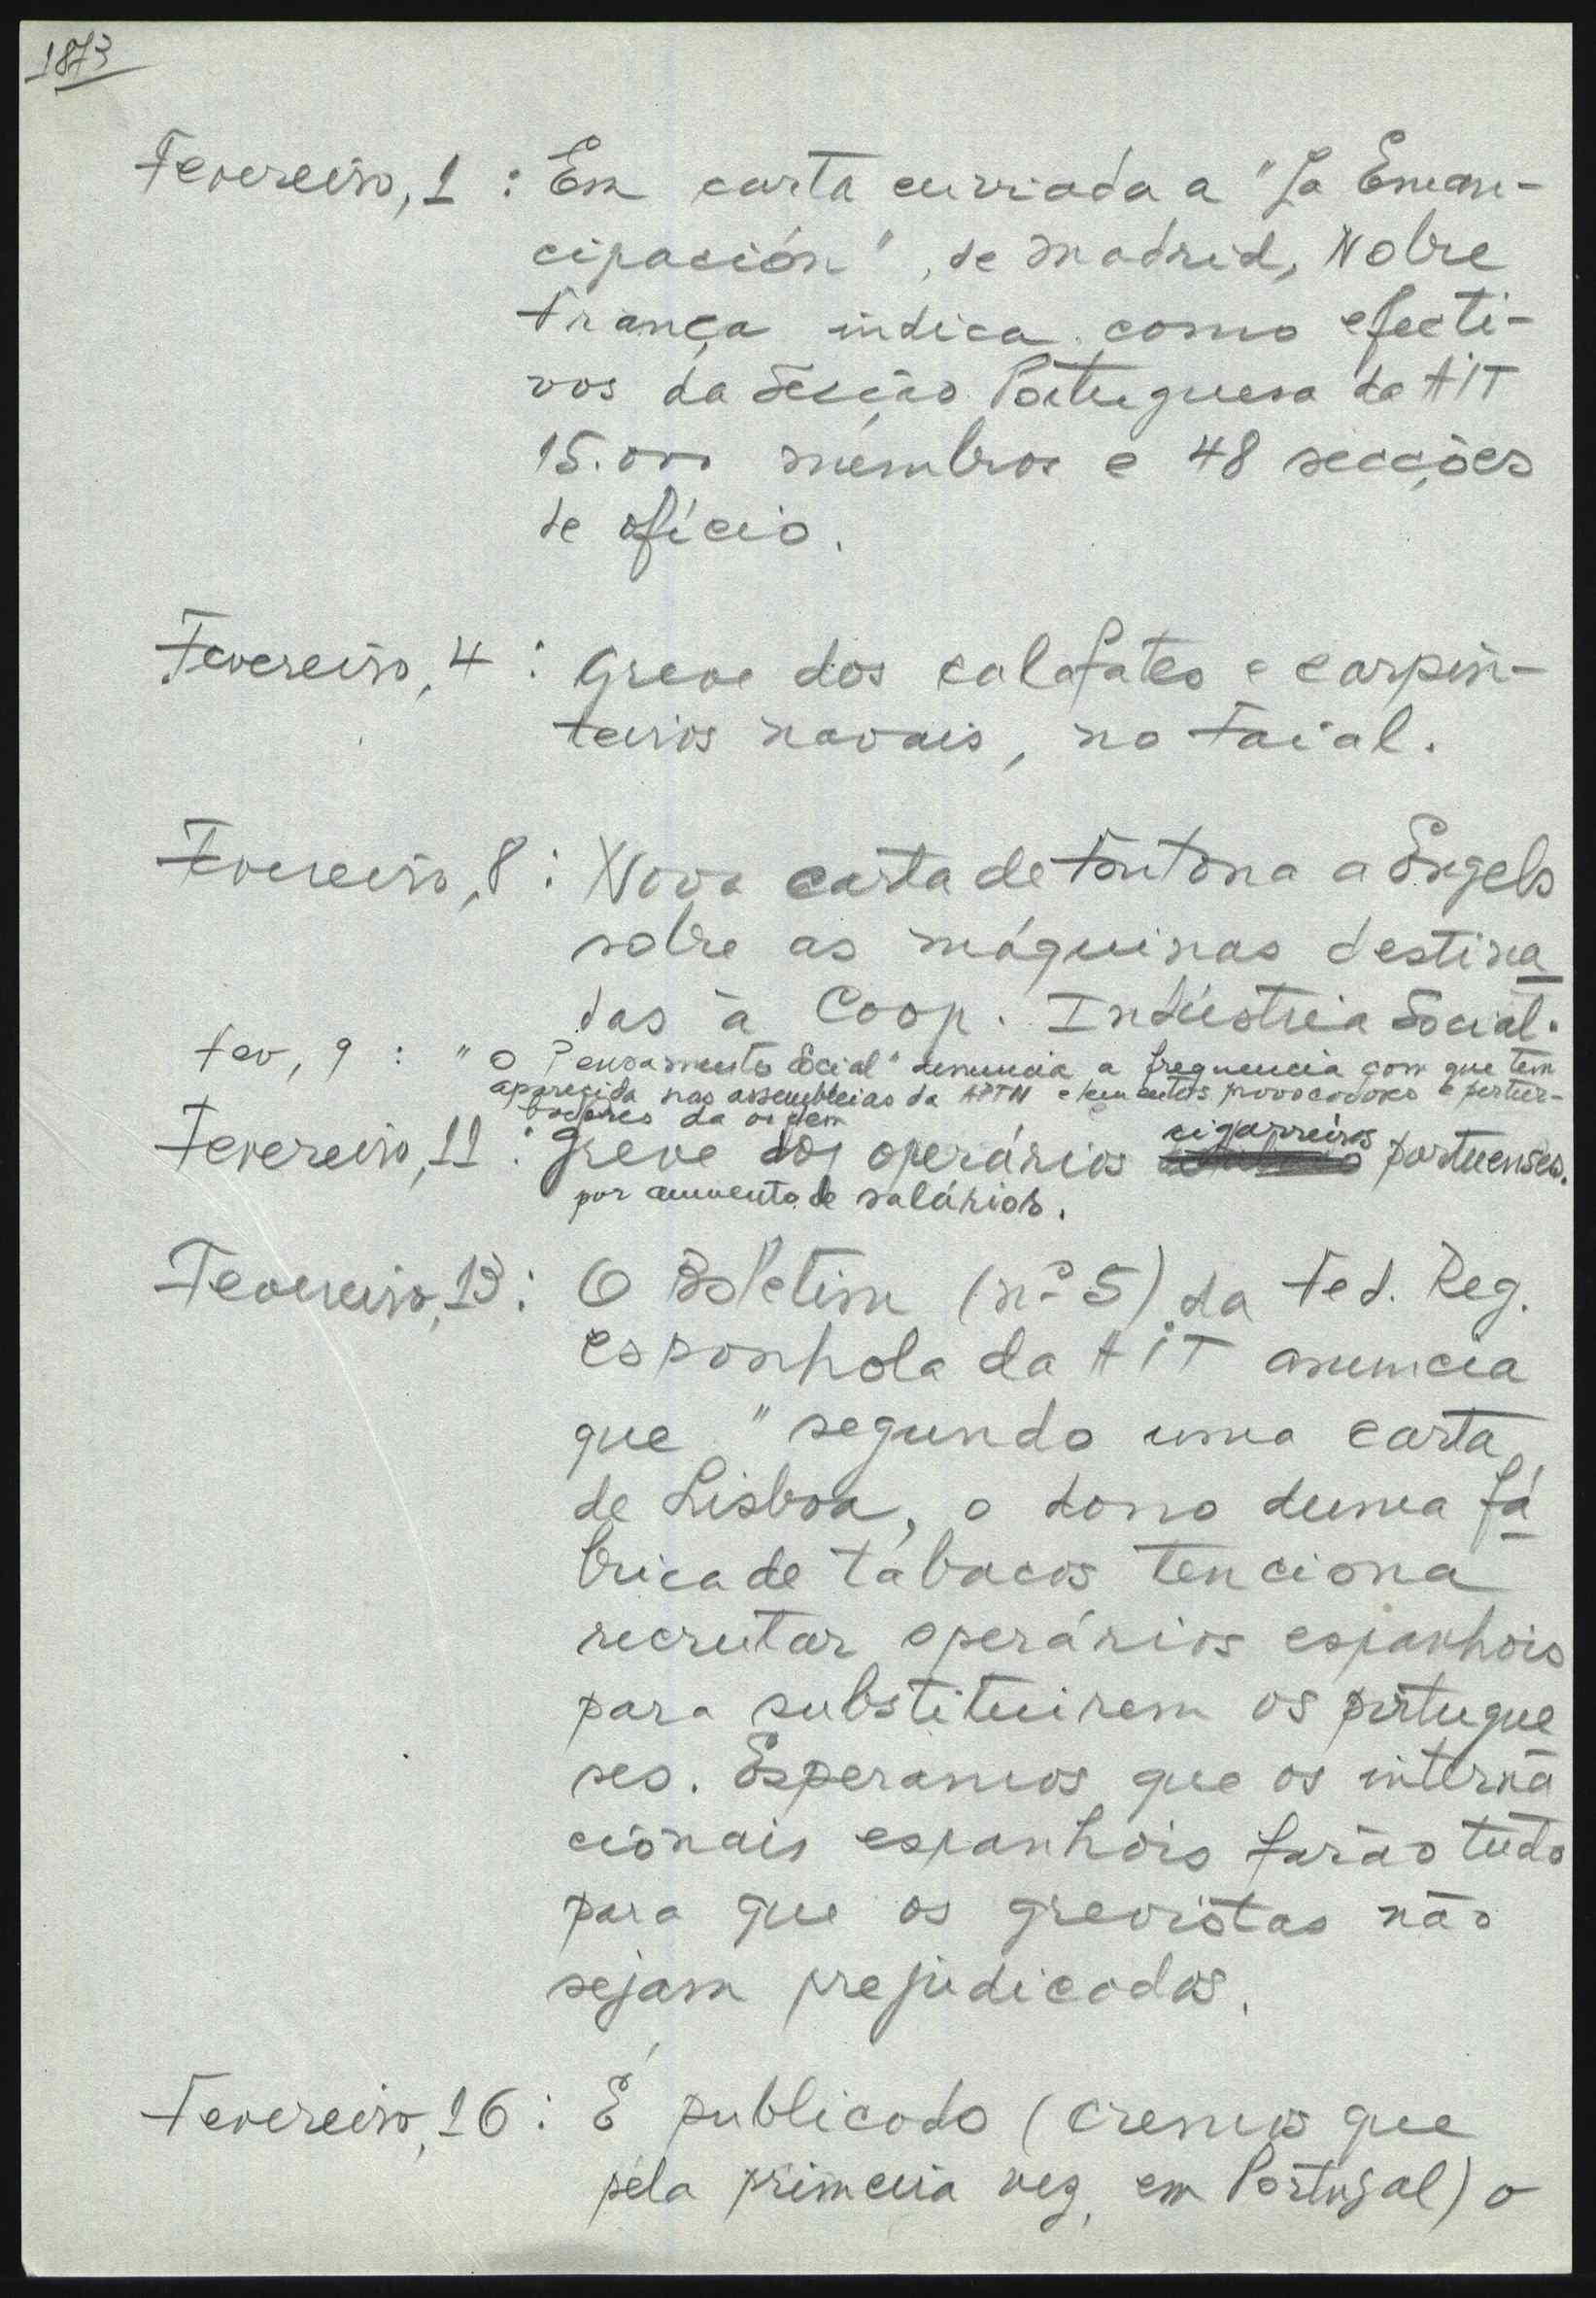 1873
Fevereiro, 1 : Em carta enviada a "La Eman-
cipación", de Madrid, Nobre
França indica como efecti-
vos da Secção Portuguesa da AIT
15.000 membros e 48 secções
de ofício.
Fevereiro, 4 : Greve dos calafates e carpin-
teiros navais, no Faial.
Fevereiro, 8 : Nova carta de Fontana a Engels
sobre as máquinas destina
das à Coop. Indústria Social.
Fev, 9 : "O Pensamento Social" denuncia a frequencia com que tem
aparecido nas assembleias da APTN elementos provocadores e pertur-
badores da ordem
Fevereiro, 11 : Greve dos operários cigarreiros portuenses.
por aumento de salários.
Fevereiro, 13 : O Boletim (nº 5) da Fed. Reg.
espanhola da AIT anuncia
que "segundo uma carta
de Lisboa, o dono duma fá
brica de tabacos tenciona
recrutar operários espanhois
para substituirem os portugue
ses. Esperamos que os interna
cionais espanhois farão tudo
para que os grevistas não
sejam prejudicados.
Fevereiro, 16 : É publicado (cremos que
pela primeira vez, em Portugal) o